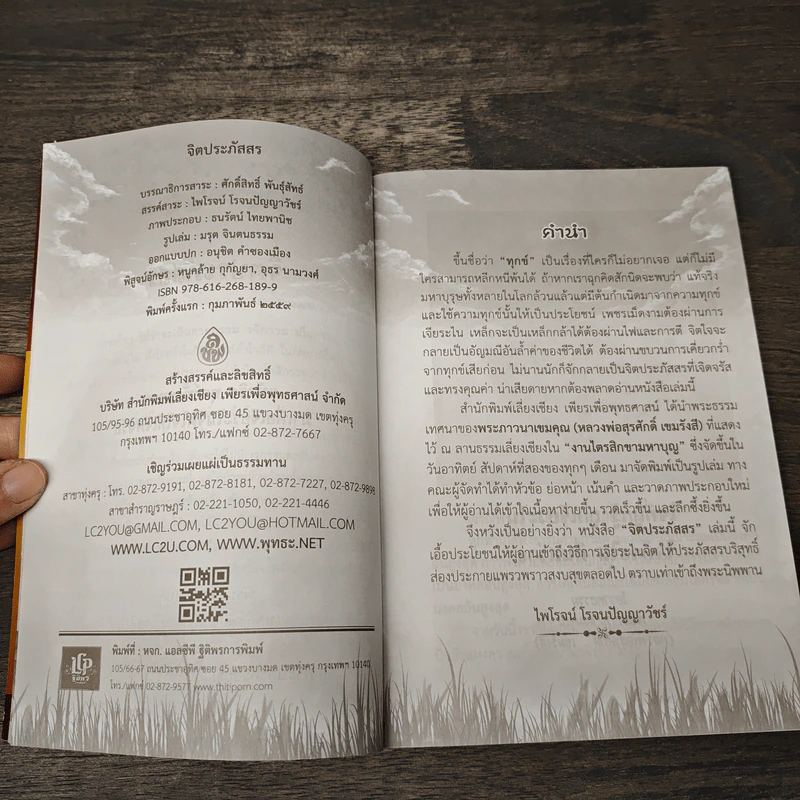 จิตประภัสสร
บรรณาธิการสาระ : ศักดิ์สิทธิ์ พันธุ์สัทธ์
สรรค์สาระ : ไพโรจน์ โรจนปัญญาวัชร์
ภาพประกอบ : ธนรัตน์ ไทยพานิช
รูปเล่ม : มรุต จินตนธรรม
ออกแบบปก : อนุชิต คำซองเมือง
พิสูจน์อักษร : หนูคล้าย กุกัญยา, อุธร นามวงศ์
ISBN 978-616-268-189-9
พิมพ์ครั้งแรก : กุมภาพันธ์ ๒๕๕๙
สร้างสรรค์และลิขสิทธิ์
บริษัท สำนักพิมพ์เลี่ยงเชียง เพียรเพื่อพุทธศาสน์ จำกัด
105/95-96 ถนนประชาอุทิศ ซอย 45 แขวงบางมด เขตทุ่งครุ
กรุงเทพฯ 10140 โทร./แฟกซ์ 02-872-7667
เชิญร่วมเผยแผ่เป็นธรรมทาน
สาขาทุ่งครุ : โทร. 02-872-9191, 02-872-8181, 02-872-7227, 02-872-9898
สาขาสำราญราษฎร์ : 02-221-1050, 02-221-4446
LC2YOU@GMAIL.COM, LC2YOU@HOTMAIL.COM
WWW.LC2U.COM, WWW.พุทธะ.NET
พิมพ์ที่ : หจก. แอลซีพี ฐิติพรการพิมพ์
105/66-67 ถนนประชาอุทิศ ซอย 45 แขวงบางมด เขตทุ่งครุ กรุงเทพฯ 10140
โทร./แฟกซ์ 02-872-9577 www.thitiporn.com
คำนำ
ขึ้นชื่อว่า “ทุกข์” เป็นเรื่องที่ใครก็ไม่อยากเจอ แต่ก็ไม่มี
ใครสามารถหลีกหนีพ้นได้ ถ้าหากเราฉุกคิดสักนิดจะพบว่า แท้จริง
มหาบุรุษทั้งหลายในโลกล้วนแล้วแต่มีต้นกำเนิดมาจากความทุกข์
และใช้ความทุกข์นั้นให้เป็นประโยชน์ เพชรเม็ดงามต้องผ่านการ
เจียระไน เหล็กจะเป็นเหล็กกล้าได้ต้องผ่านไฟและการตี จิตใจจะ
กลายเป็นอัญมณีอันล้ำค่าของชีวิตได้ ต้องผ่านขบวนการเคี่ยวกรำ
จากทุกข์เสียก่อน ไม่นานนักก็จักกลายเป็นจิตประภัสสรที่เจิดจรัส
และทรงคุณค่า น่าเสียดายหากต้องพลาดอ่านหนังสือเล่มนี้
สำนักพิมพ์เลี่ยงเชียง เพียรเพื่อพุทธศาสน์ ได้นำพระธรรม
เทศนาของพระภาวนาเขมคุณ (หลวงพ่อสุรศักดิ์ เขมรังสี) ที่แสดง
ไว้ ณ ลานธรรมเลี่ยงเชียงใน “งานไตรสิกขามหาบุญ” ซึ่งจัดขึ้นใน
วันอาทิตย์ สัปดาห์ที่สองของทุกๆ เดือน มาจัดพิมพ์เป็นรูปเล่ม ทาง
คณะผู้จัดทำได้ทำหัวข้อ ย่อหน้า เน้นคำ และวาดภาพประกอบใหม่
เพื่อให้ผู้อ่านได้เข้าใจเนื้อหาง่ายขึ้น รวดเร็วขึ้น และลึกซึ้งยิ่งขึ้น
จึงหวังเป็นอย่างยิ่งว่า หนังสือ “จิตประภัสสร” เล่มนี้ จัก
เอื้อประโยชน์ให้ผู้อ่านเข้าถึงวิธีการเจียระไนจิต ให้ประภัสสรบริสุทธิ์
ส่องประกายแพรวพราวสงบสุขตลอดไป ตราบเท่าเข้าถึงพระนิพพาน
ไพโรจน์ โรจนปัญญาวัชร์